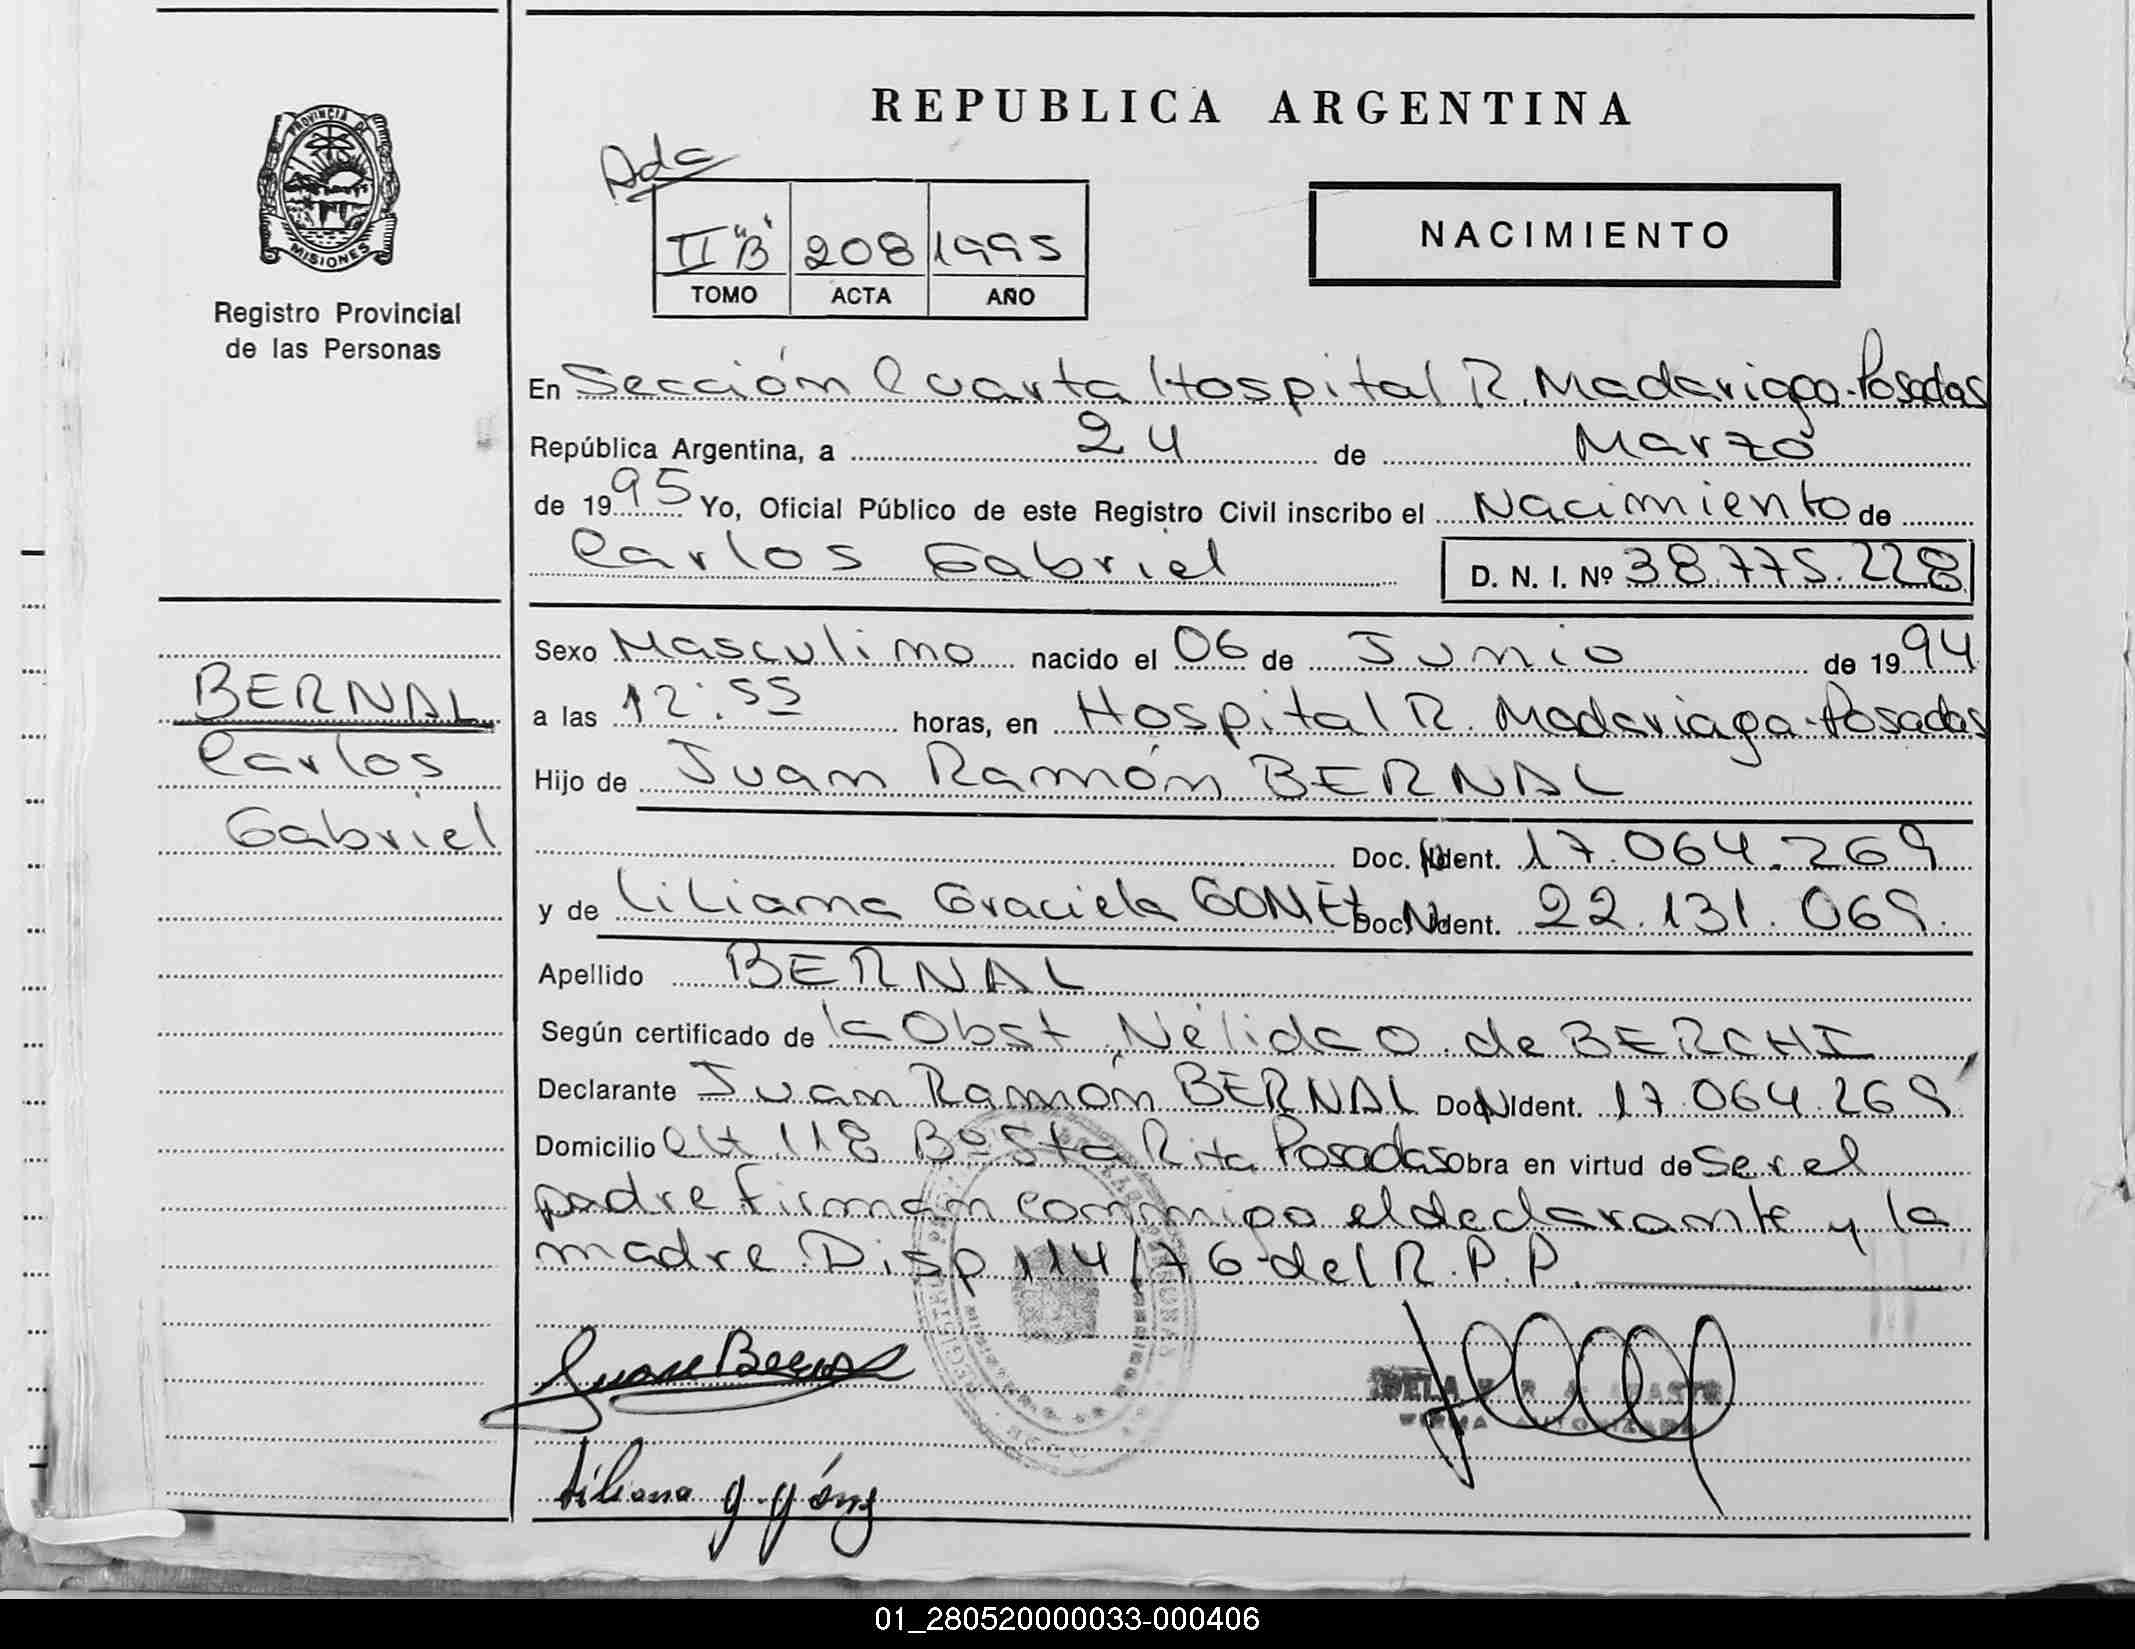 REPUBLICA ARGENTINA
PROVINCIA DE
MISIONES
Registro Provincial
de las Personas
Ada
II "B" 208 1995
TOMO ACTA AÑO
NACIMIENTO
En Sección Cuarta Hospital R. Madariaga-Posadas
República Argentina, a 24 de Marzo
de 1995 Yo, Oficial Público de este Registro Civil inscribo el Nacimiento de
Carlos Gabriel D. N. I. Nº 38.775.228
Sexo Masculino nacido el 06 de Junio de 1994
BERNAL
Carlos
Gabriel
a las 12:55 horas, en Hospital R. Madariaga-Posadas
Hijo de Juan Ramón BERNAL
Doc. Ident. 17.064.269
y de Liliana Graciela Doc. Ident. 22.131.069.
Apellido BERNAL
Según certificado de la Obst. Nélida O. de BERCHI
Declarante Juan Ramón BERNAL Doc. Ident. 17.064.269
Domicilio 118 Bº Sta Rita Posadas Obra en virtud de Ser el
padre Firman conmigo el declarante y la
madre. Disp 114/76 del R.P.P.
Juan Bernal
Liliana G. Gómez
FIRMA AUTORIZADA
01_280520000033-000406